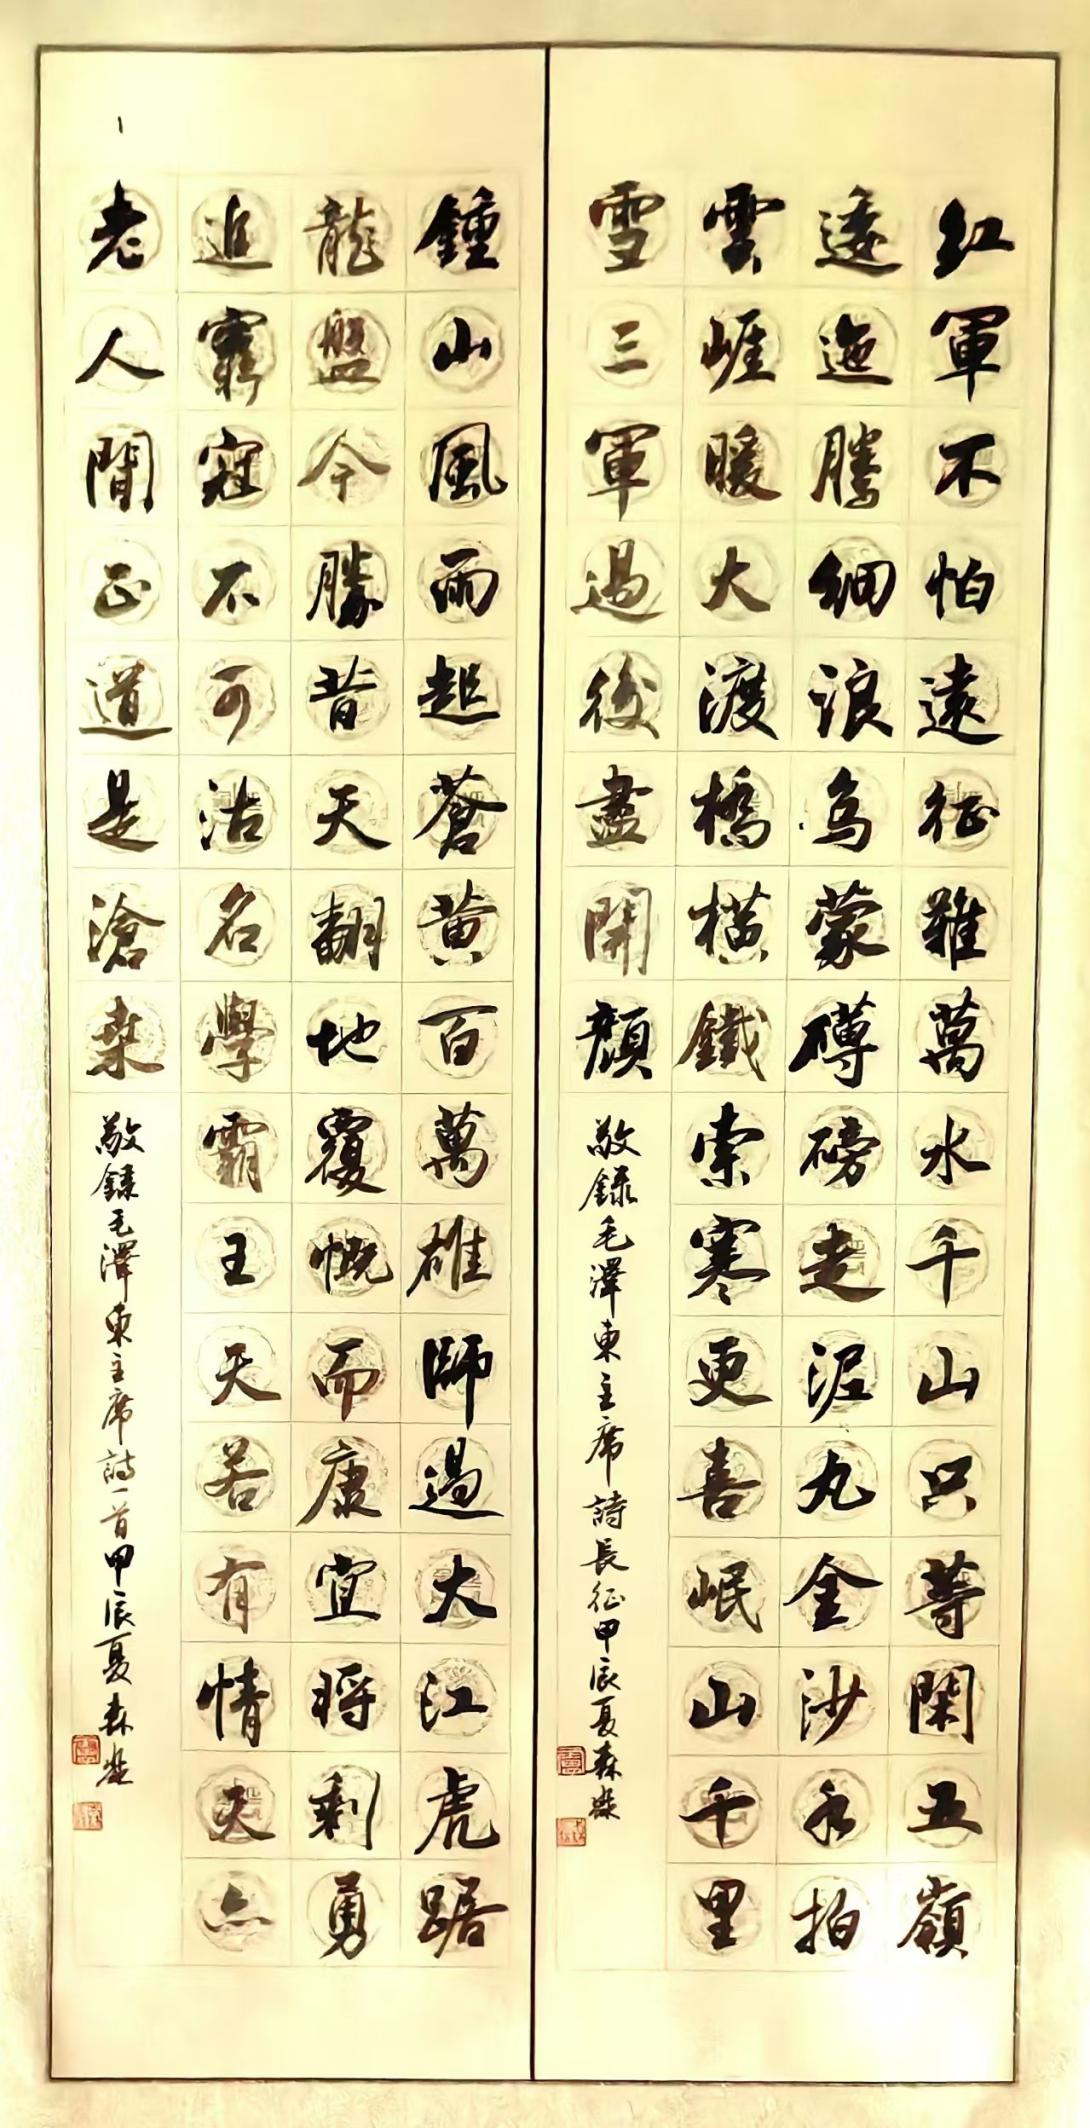 紅軍不怕遠征難萬水千山只等閑五嶺
逶迤騰細浪烏蒙礴磅走泥丸金沙水拍
雲崕暖大渡橋橫鐵索寒更喜岷山千里
雪三軍過後盡開顏
敬錄毛澤東主席詩長征甲辰夏森
鍾山風雨起蒼黃百萬雄師過大江虎踞
龍盤今勝昔天翻地覆慨而康宜將剩勇
追窮寇不可沽名學霸王天若有情天亦
老人間正道是滄桑
敬錄毛澤東主席詩一首甲辰夏森